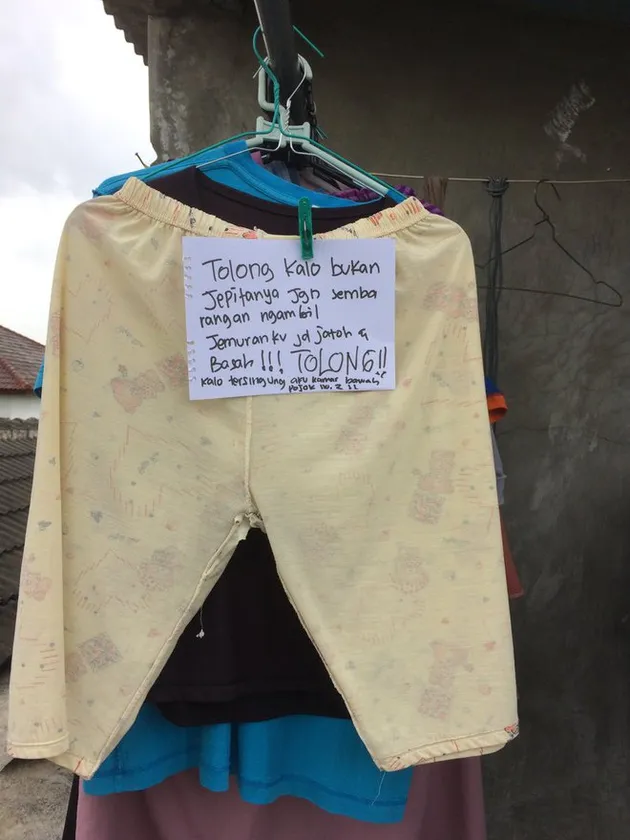 Tolong kalo bukan
Jepitanya Jgn semba
rangan ngambil
Jemuranku jd jatoh &
Basah !!! TOLONG!!
kalo tersinggung aku kamar bawah,
Pojok no. 2